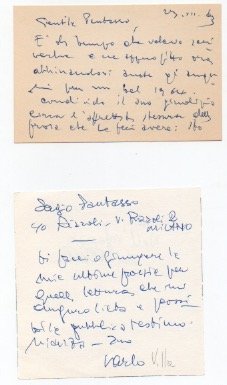 Gentile Pautasso
È da tempo che volevo scri
verLe e ne approfitto ora
abbinandovi anche gli augu
ri per un bel
condivido il suo giudizio
circa l'affrettata stesura della
prosa che Le feci avere:
Sergio Pautasso
c/o Rizzoli - V. Rizzoli 2
MILANO
Vi faccio giungere le
mie ultime poesie per
quella lettura che mi
auguro lieta e
bile pubblica testimo
nianza - Suo
Carlo Villa